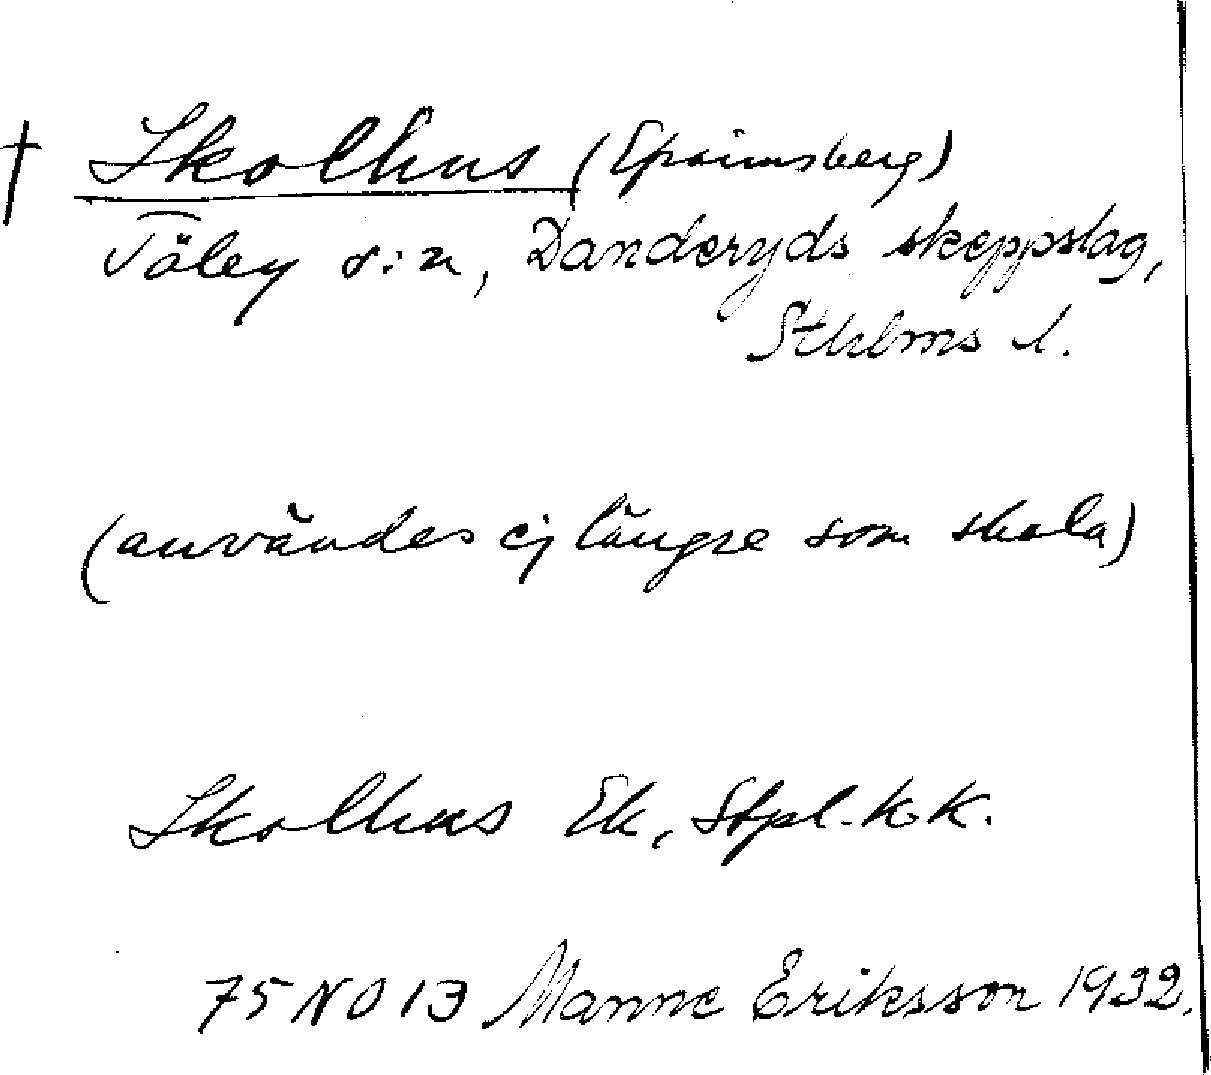 † Skolhus (Epraimsberg)
Täby s:n, Danderyds skeppslag,
Sthlms l.
(användes ej längre som skola)
Skolhus Ek, Stpl. k. K.
75 NO 13 Manne Eriksson 1932.